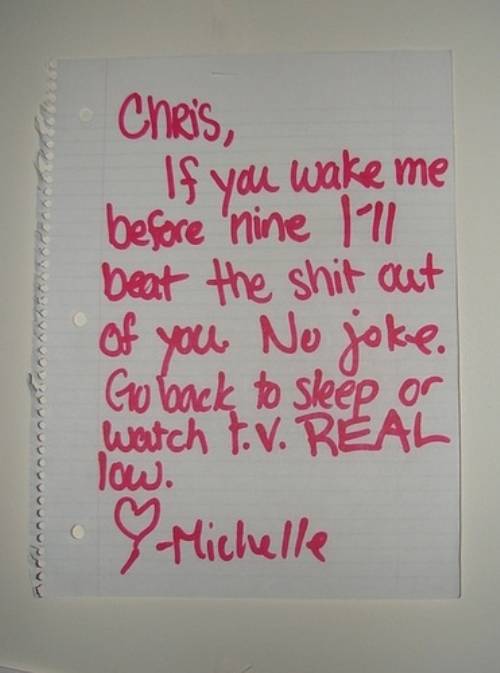 Chris,
If you wake me
before nine I'll
beat the shit out
of you. No joke.
Go back to sleep or
watch t.v. REAL
low.
♡ -Michelle